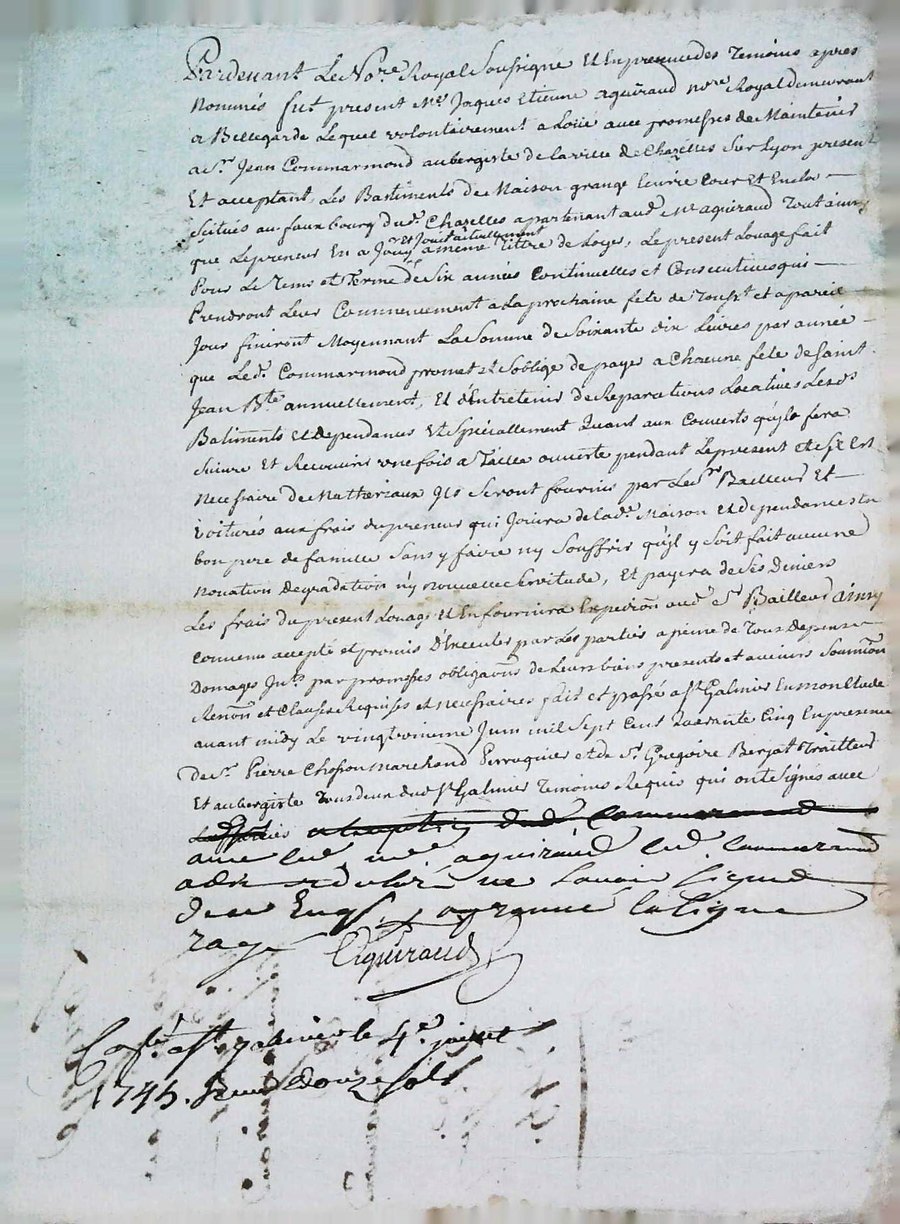 Pardevant Le No.re Royal Soussigné Et En presence des Temoins apres
nommés fut present Me. Jaques Etienne aguiraud no.re Royal demeurant
a Bellegarde Lequel volontairement a Loüé avec promesses de Maintenir
a Sr. Jean Commarmond aubergiste de la ville de Chazelles Sur Lyon present
Et acceptant, Les Bastiments De Maison grange Ecurie Cour Et Enclos
Scitués au faux bourg dud. Chazelles apartenant aud. Me aguiraud Tout ainsy
que Le preneur En a Jouy et Jouit actuellement a même Tittre de Loyer, Le present Louage fait
Pour Le Tems et Terme de Six années Continuelles et Consecutives qui
Prendront Leur Commencement a La prochaine fete de Touss.t et a pareil
Jour finiront Moyennant La Somme de Soixante dix Livres par année
que Led. Commarmond promet et S'oblige de payer a Chacune fete de Saint
Jean B.te annuellement, Et d'Entretenir de Reparations Locatives Lesds
Batiments Et dependances Et Specialement Quant aux Couverts qu'il fera
Suivre Et Recouvrir une fois a Taille ouverte pendant Le present et S'il Est
necessaire de Matheriaux Ils Seront fournis par Led. Sr Bailleur Et
Voiturés aux frais du preneur qui Jouira de lad. Maison Et dependances En
bon pere de famille Sans y faire ny Souffrir qu'il y Soit fait aucune
novation degradation n'y nouvelle Servitude, Et payera de Ses Deniers
Les frais du present Louage Et En fournira Expedion aud. Sr Bailleur ainsy
Convenu accepté et promis D'Executer par Les parties a peine de Tous Depens
Domages Int.s par promesses obligaons de Leurs biens presents et avenirs Soumion
Renon et Clauses Requises et necessaires fait et passé a St Galmier En mon Etude
avant midy Le vingt troisieme Juin mil Sept Cent quarante Cinq En presence
de Sr. Pierre Marchand Perruquier et de Sr. Gregoire Berjat Traitteur
Et aubergiste Tous deux dud St Galmier Temoins Requis qui ont Signés avec
Commarmond
avec led. me aguiraud led. Commarmond
a declaré ne Savoir Signer
de ce Enqs. approuvé la Ligne
rayé Aguiraud
Con.lé a St galmier le 4e. juillet
1745. Reçu douze Sols